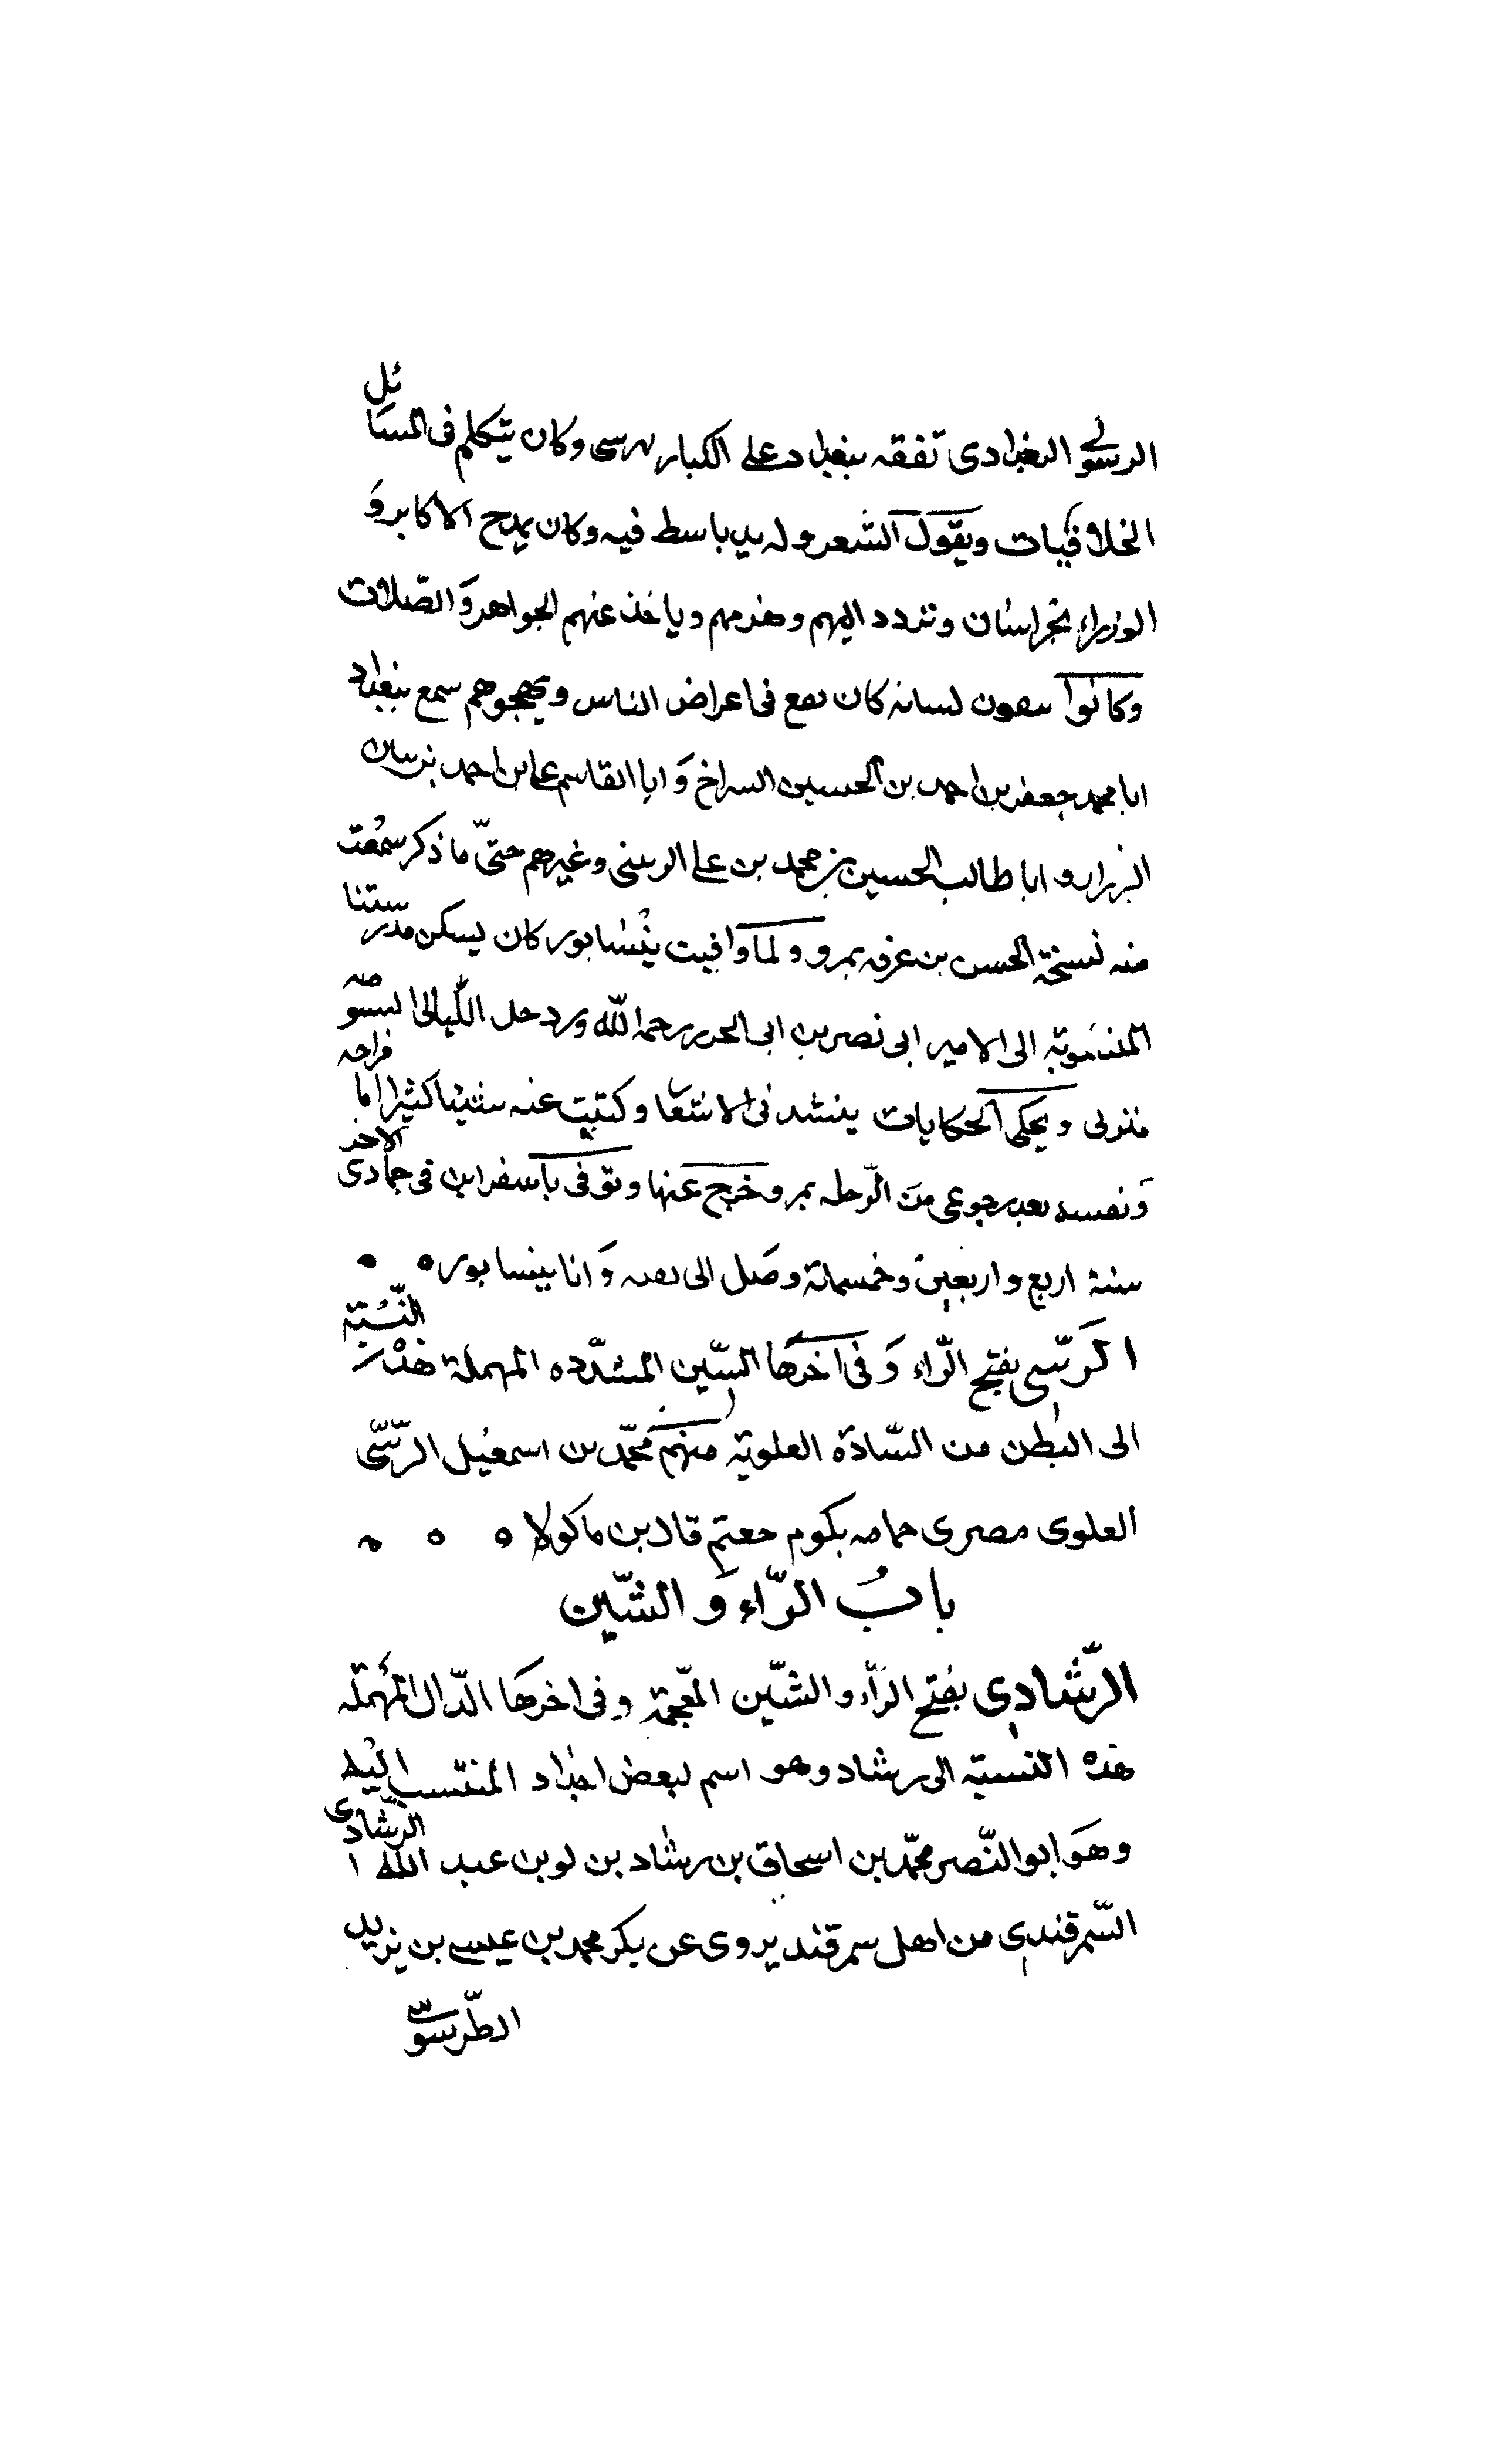 الرسولي البغدادى تفقه ببغداد على الكبار هرسى وكان يتكلم فى المسائل
الخلافيات ويقول الشعر وله يد باسط فيه وكان يمدح الاكابر و
الوزراء بخراسان وتردد اليهم وخدمهم وياخذ عنهم الجواهر والصّلات
وكانوا يتقون لسانه كان يقع فى اعراض الناس ويهجوهم سمع ببغداد
ابا محمد جعفر بن احمد بن الحسين السراج وَ ابا القاسم على بن احمد بن بيان
الرزاز و ابا طالب الحسين بن محمد بن على الزينبى وغيرهم حتىّ ما ذكر سمعت
منه نسخة الحسن بن عرفه بمرو ولما وافيت نيْسَابور كان يسكن مدرستنا
المنسوبة الى الامير ابى نصر بن ابى رحمه الله ورد حل اللّيالى
منزلى ويحكى الحكايات ينشدنى الاشعار وكتبت عنه شيْئا كثيرا اما
وَنفسه بعد رجوعى من الرّحله بمرو خرج عنها وتوفى باسفراين فى جمادى الاخر
سنة اربع و اربعين وخمسمائة وصَل الى نعيه وَ انا بنيسابور ٥ ٥
الرَسّى بفتح الرّاء وَ فى اخرَها السّين المشدّده المهملة هذه النّسْبة
الى البطن من السّادة العلوية منهم محمّد بن اسمعيل الرّسّى
العلوى مصرى بكوم قال بن ماكولا ٥ ٥ ٥
بابُ الرّاء وَ الشّين
الرّشادى بفتح الرّاء و الشّين المعْجمة و فى اخرَها الدّال المهْمَله
هذه النسْبة الى رشاد وهو اسم لبعض اجداد المنتسب اليْه
وهوَ ابو النّصر محمّد بن اسحاق بن رشاد بن لو بن عبد الله ا الرّشادى
السّمرقندى من اهل سمرقند يروى عن بكر محمد بن عيسى بن يزيد
الطّرسوسّى